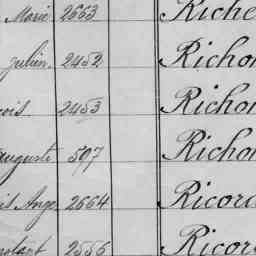 Marie 2663 Riche
Julien 2452 Richo
ois 2453 Richon
Auguste 597 Richon
is Ange 2664 Ricord
2556 Ricor